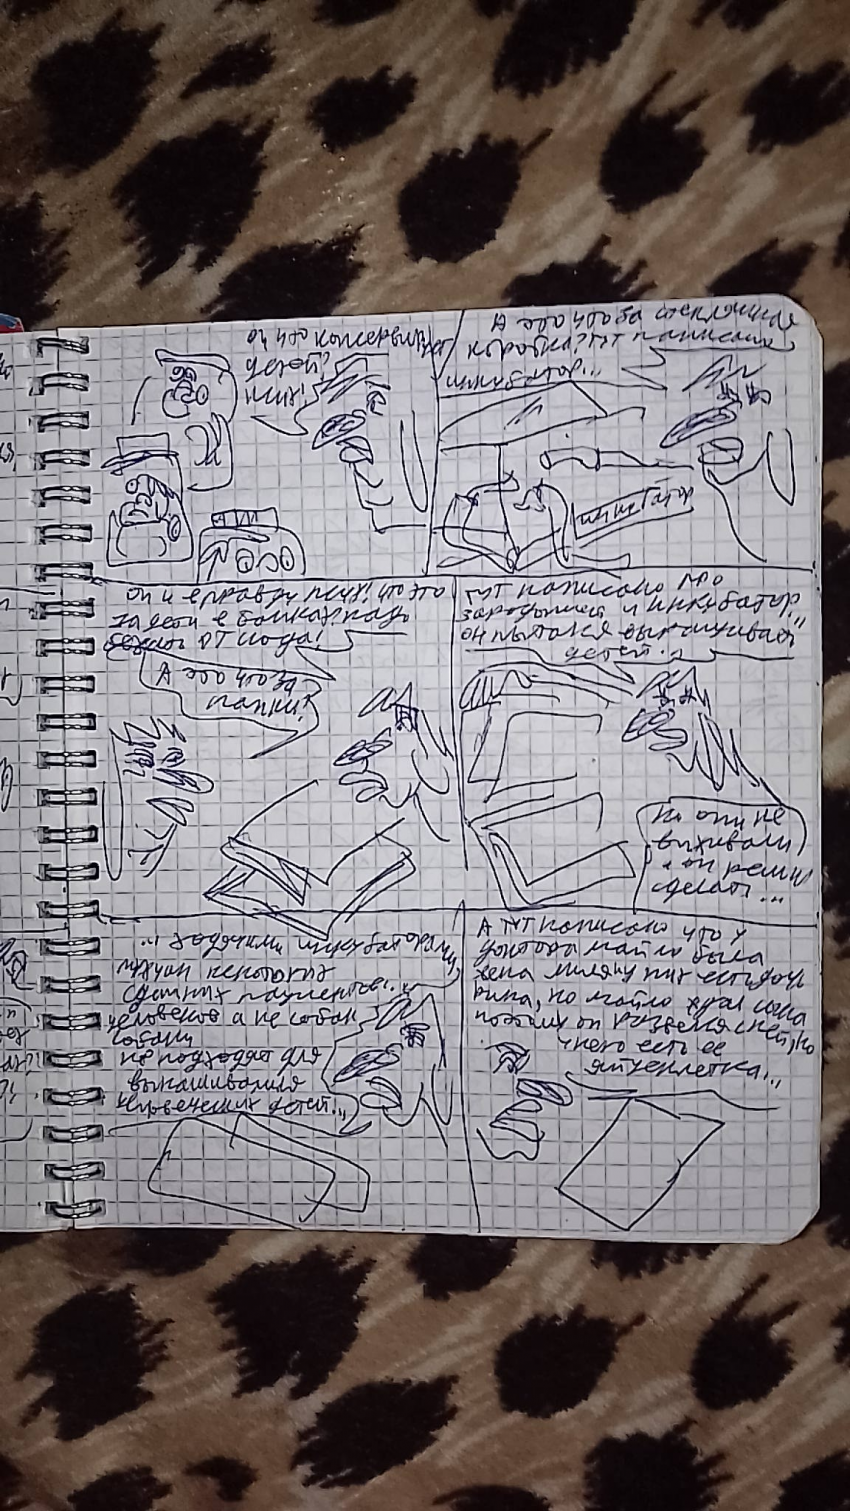 он что консервирует
детей?
псих!
А это что за стеклянная
коробка? тут написано
инкубатор...
инкубатор
он и вправду псих! что это
за дети в банках? надо
бежать от сюда!
А это что за
папки?
тут написано про
зародышей и инкубатор...
он пытался выращивать
детей...
но они не
выживали
и он решил
сделать...
...ходячими инкубаторами
сделанных пациентов...
человеков а не собак
собаки
не подходят для
вынашивания
человеческих детей...
А тут написано что у
доктора Майло была
жена у них есть дочь
но Майло хотел сына
поэтому он развёлся с ней, но
у него есть её
яйцеклетка...